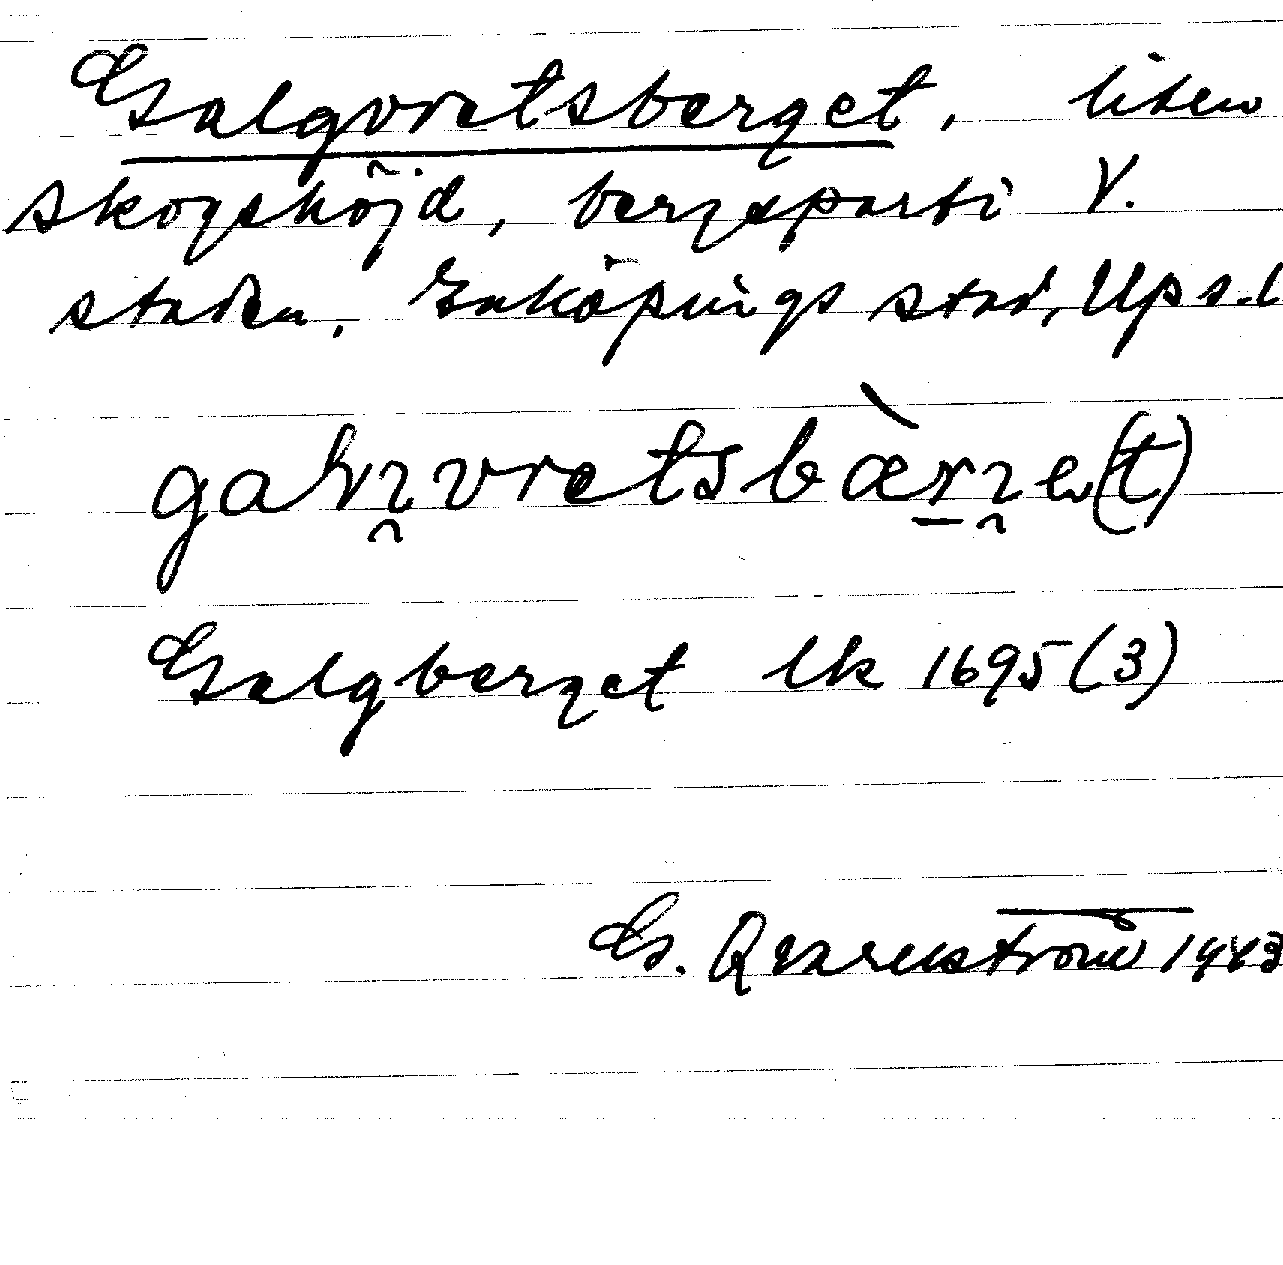 Galgvretsberget, liten
skogshöjd, bergsparti V.
staden. Enköpings stad, Ups. l
Galgberget lk 1695 (3)
G. Qvarnström 1943